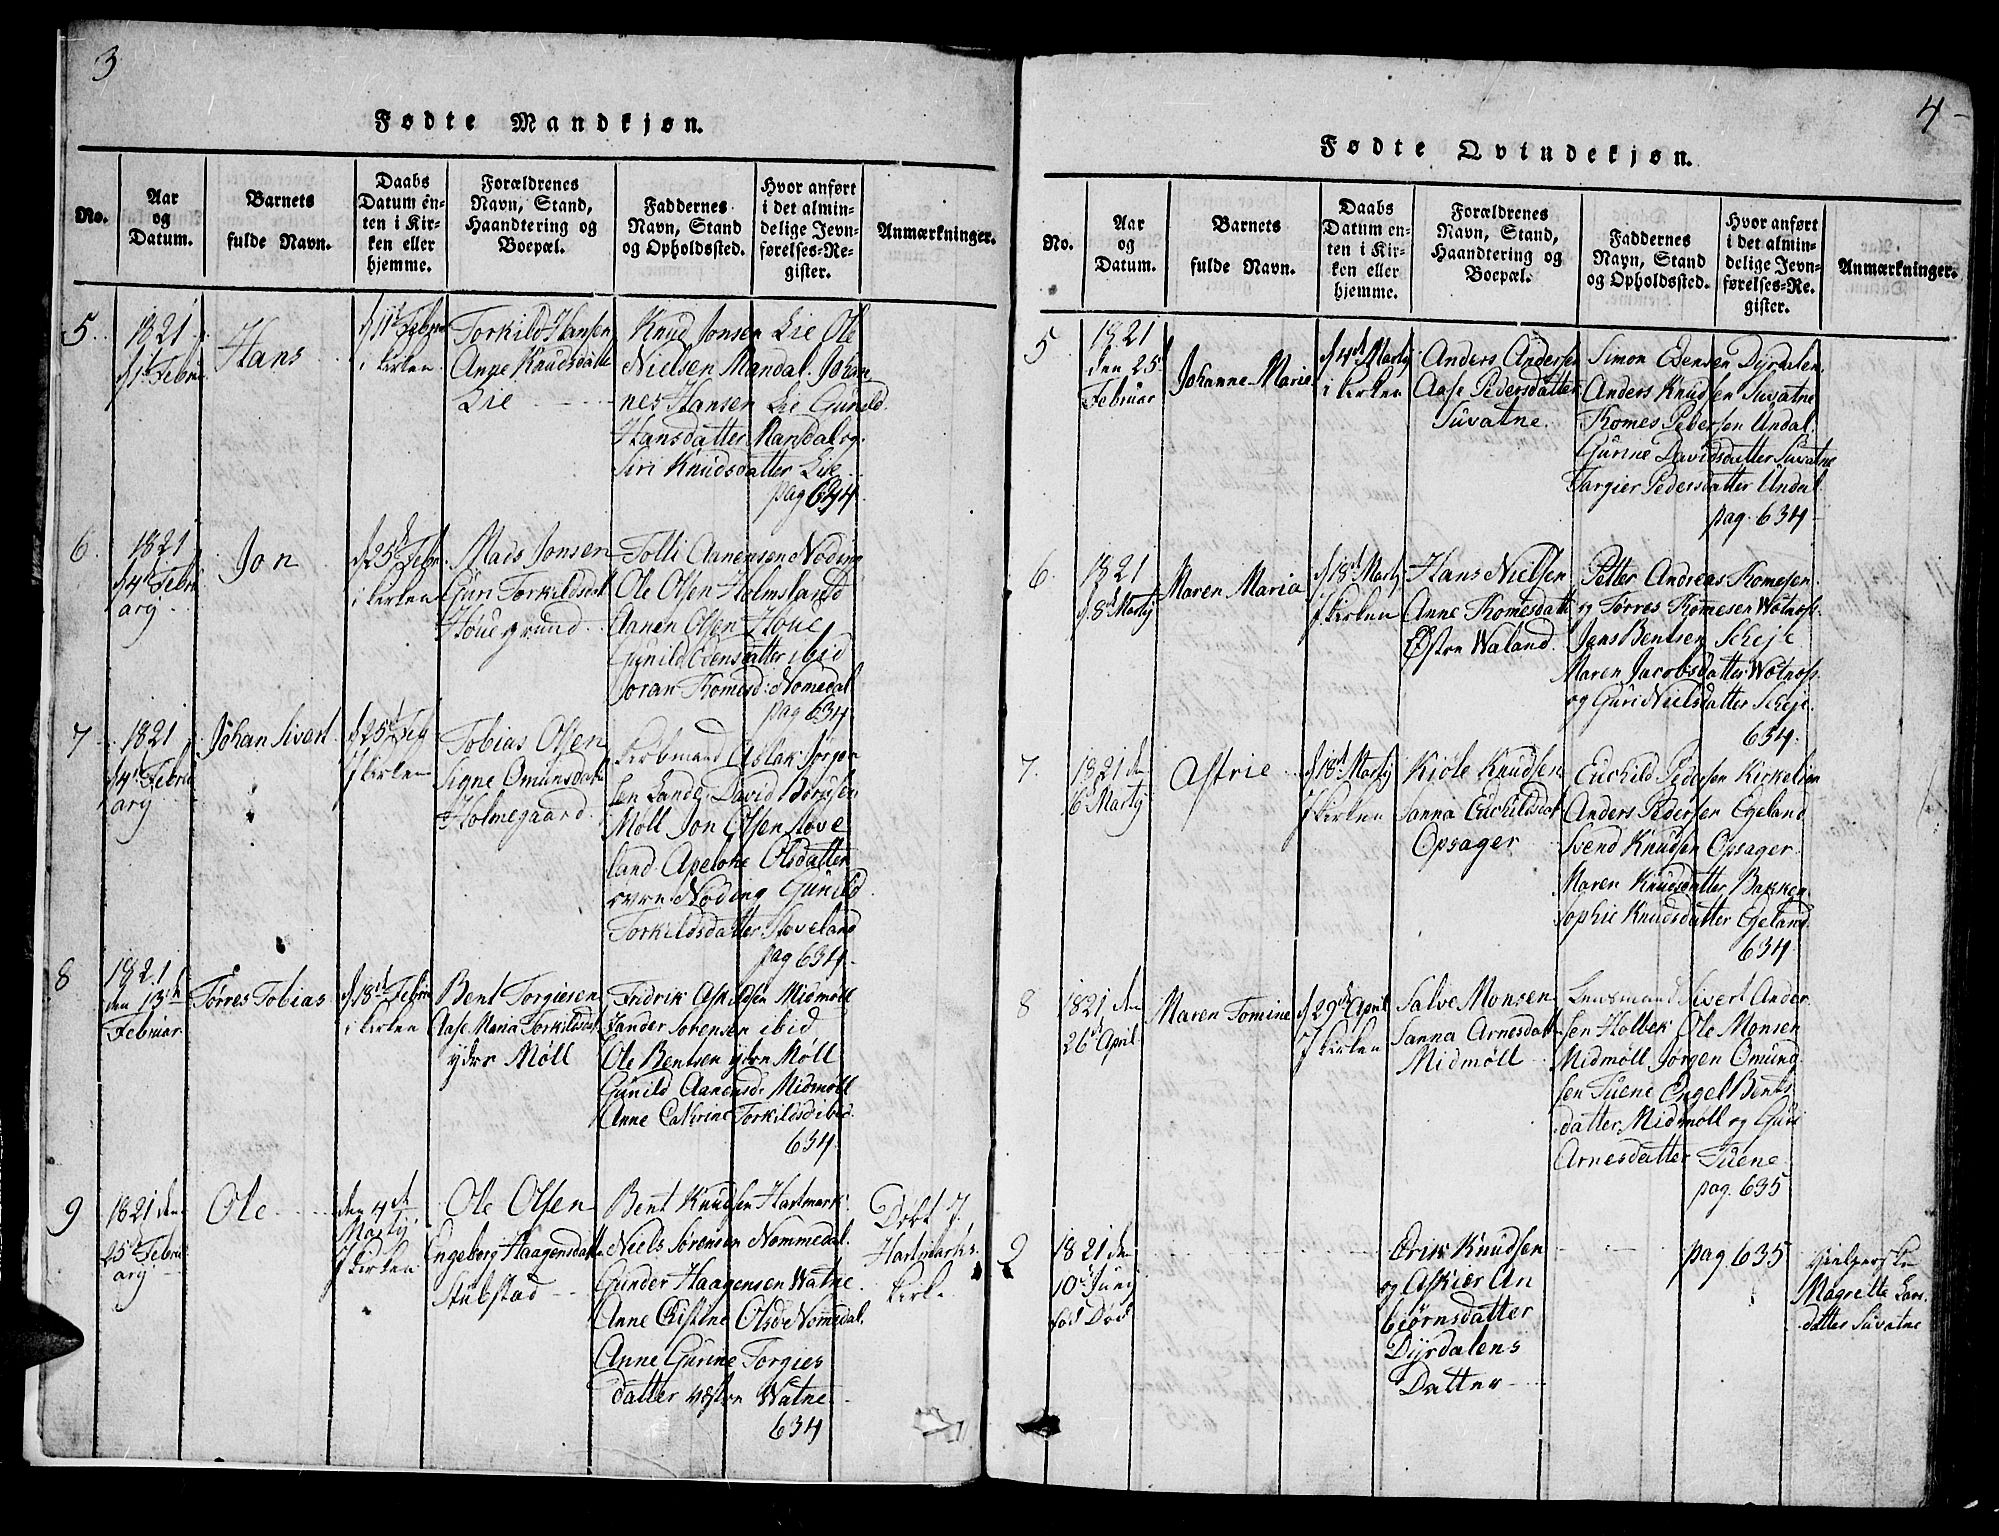 3
Fødte Mandkjøn.
No.
Aar
og
Datum.
Barnets
fulde Navn.
Daabs
Datum en-
ten i Kir-
ken eller
hjemme.
Forældrenes
Navn, Stand,
Haandtering og
Boepæl.
Faddernes
Navn, Stand
og Opholdssted.
Hvor anført
i det almin-
delige Jevn-
førelses-Re-
gister.
Anmærkninger.
5
1821
d 1st Febru
Hans
d 11t Febru
i kirken
Torkild Hansen
Anne Knudsdatte
Lie
Knud Jonsen Lie Ole
Nielsen Mandal. Johan
nes Hansen Lie Gunild
Hansdatter Mandal og
Siri Knudsdatter Lie
pag 634
6
1821
d 4t Febru
ary
Jon
d 25d Febr
i kirken
Mads Jonsen
Guri Torkildsdt
Houegrund
Tolli Aanensen Nøding
Ole Olsen Holmsland
Aanen Olsen Houe
Gunild Edensdatter ibid
Joran Thomesd: Nomedal
pag 634
7
1821
d 4t Febru
ary
Johan Sivert
d 25d Feb
J kirken
Tobias Olsen
Signe Omunsdatte
Holmegaard
Aslak Jorgen
sen Sande David Børusen
Møll Jon Olsen Støve
land Apelone Olsdatter
øvre Nøding Gunild
Torkildsdatter Støveland
pag 634
8
1821
den 13th
Februar
Tørres Tobias
d 18d Febru
i kirken
Bent Torgiesen
Aase Maria Torkildsdat
ydre Møll
Fridrik Askildsen Midmøll
Zander Sorensen ibid
Ole Bentsen ydre Møll
Gunild Aanensd: Midmøll
Anne Cathrine Torkildsd ibid
634
9
1821 den
25d Febru
ary
Ole
den 4th
Marty
J kirken
Ole Olsen
Engeborg Haagensdatte
Stubstad
Bent Knudsen Hartmark
Niels Sørensen Nommedal
Gunder Haagensen Watne
Anne Cristine Olsd Nomedal
Anne Gurine Torgies
datter vestre Watne
634
Døbt J
Hartmarks
kirke
4
Fødte Qvindekjøn.
No.
Aar
og
Datum.
Barnets
fulde Navn.
Daabs
Datum en-
ten i Kir-
ken eller
hjemme.
Forældrenes
Navn, Stand,
Haandtering og
Boepæl.
Faddernes
Navn, Stand
og Opholdssted.
Hvor anført
i det almin-
delige Jevn-
førelses-Re-
gister.
Anmærkninger.
5
1821
den 25d
Februar
Johanne Marie
d 4d Marty
i kirken
Anders Andersen
Aase Pedersdatter
Suvatne.
Simon Edensen Dyrdalen
Anders Knudsen Suvatne
Thomes Pedersen Undal
Gurine Davidsdatter Suvatne
Targier Pedersdatter Undal
pag. 634
6
1821
d. 8d Marty
Maren Maria
d 18d Marty
J kirken
Hans Nielsen
Anne Thomesdatt
Østre Waland
Petter Andreas Thomesen
og Tørres Thomesen Wotnos
Jens Bentsen Scheje
Maren Jacobsdatter Wotnos
og Guri Nielsdatter Scheje
634
7
1821 den
6 Marty
Astrie
d 18d Marty
J kirken
Kiøle Knudsen
Sanna Euchildsdat
Opsager
Euchild Pedersen Kirkelien
Anders Pedersen Egeland
Svend Knudsen Opsager
Maren Knudsdatter Bakken
Sophie Knudsdatter Egeland
634
8
1821 den
26d April
Maren Tomine
d 29de April
J kirken
Salve Monsen
Sanna Arnesdatt
Midmøll
Lensmand Sivert Ander
sen Holbek Ole Monsen
Midmøll Jorgen Omund
sen Tuene Engel Bents
datter Midmøll og Guri
Arnesdatter Tuene
pag. 635
9
1821 den
10d Juny
fød Død
Erik Knudsen
og Askier An
biørnsdatter
Dyrdalens
Datter
pag. 635
Magrette Lars
datter Suvatne